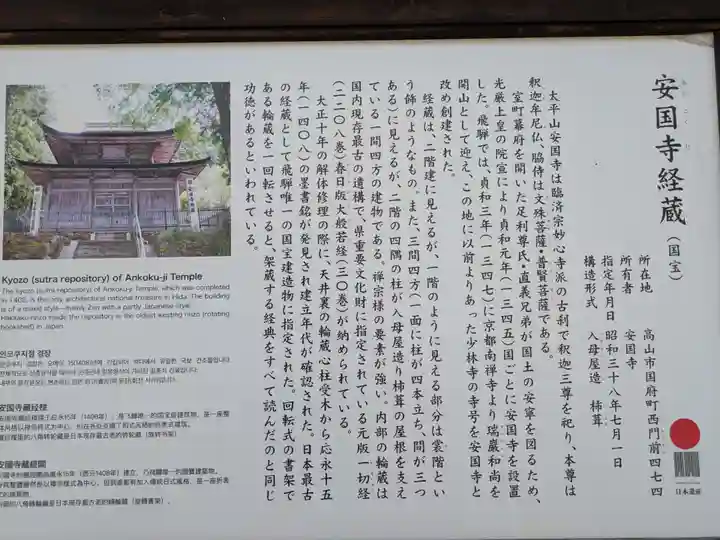 安国寺経蔵(国宝)
所在地 高山市国府町西門前四七四
所有者 安国寺
指定年月日 昭和三十八年七月一日
構造形式 入母屋造 杮葺
太平山安国寺は臨済宗妙心寺派の古刹で釈迦三尊を祀り、本尊は
釈迦牟尼仏、脇侍は文殊菩薩・普賢菩薩である。
室町幕府を開いた足利尊氏・直義兄弟が国土の安寧を図るため、
光厳上皇の院宣により貞和元年(一三四五)国ごとに安国寺を設置
した。飛騨では、貞和三年(一三四七)に京都南禅寺より瑞巌和尚を
開山として迎え、この地に以前よりあった少林寺の寺号を安国寺と
改め創建された。
経蔵は、二階建に見えるが、一階のように見える部分は裳階とい
う飾のようなもの。また、三間四方(一面に柱が四本立ち、間が三つ
ある)に見えるが、二階の四隅の柱が入母屋造り杮葺の屋根を支え
ている一間四方の建物である。禅宗様の要素が強い。内部の輪蔵は
国内現存最古の遺構で、県重要文化財に指定されている元版一切経
(二二〇八巻)春日版大般若経(三〇巻)が納められている。
大正十年の解体修理の際に、天井裏の輪蔵心柱受木から応永十五
年(一四〇八)の墨書銘が発見され建立年代が確認された。日本最古
の経蔵として飛騨唯一の国宝建造物に指定された。回転式の書架で
ある輪蔵を一回転させると、架蔵する経典をすべて読んだのと同じ
功徳があるといわれている。
日本遺産
Kyozo (sutra repository) of Ankoku-ji Temple
The kyozo (sutra repository) of Ankoku-ji Temple, which was completed
in 1408, is the only architectural national treasure in Hida. The building
is of a mixed style—mainly Zen with a partly Japanese style.
Hakkaku-rinzo inside the repository is the oldest existing rinzo (rotating
bookshelf) in Japan.
안코쿠지절 경장
安国寺藏经楼
安國寺藏經閣